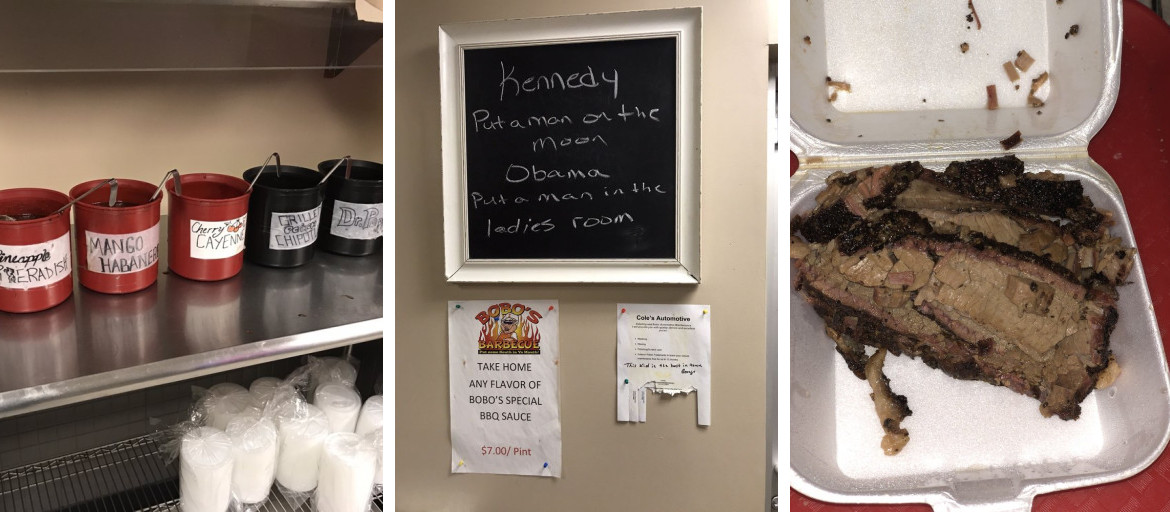 Pineapple
MANGO
HABANERO
Cherry
CAYENNE
CHIPOTLE
Dr. Pe
Kennedy
Put a man on the
moon
Obama
Put a man in the
ladies room
BOBO'S
BARBECUE
Put some South in Yo Mouth!
TAKE HOME
ANY FLAVOR OF
BOBO'S SPECIAL
BBQ SAUCE
$7.00/ Pint
Cole's Automotive
"This kid is the best in town